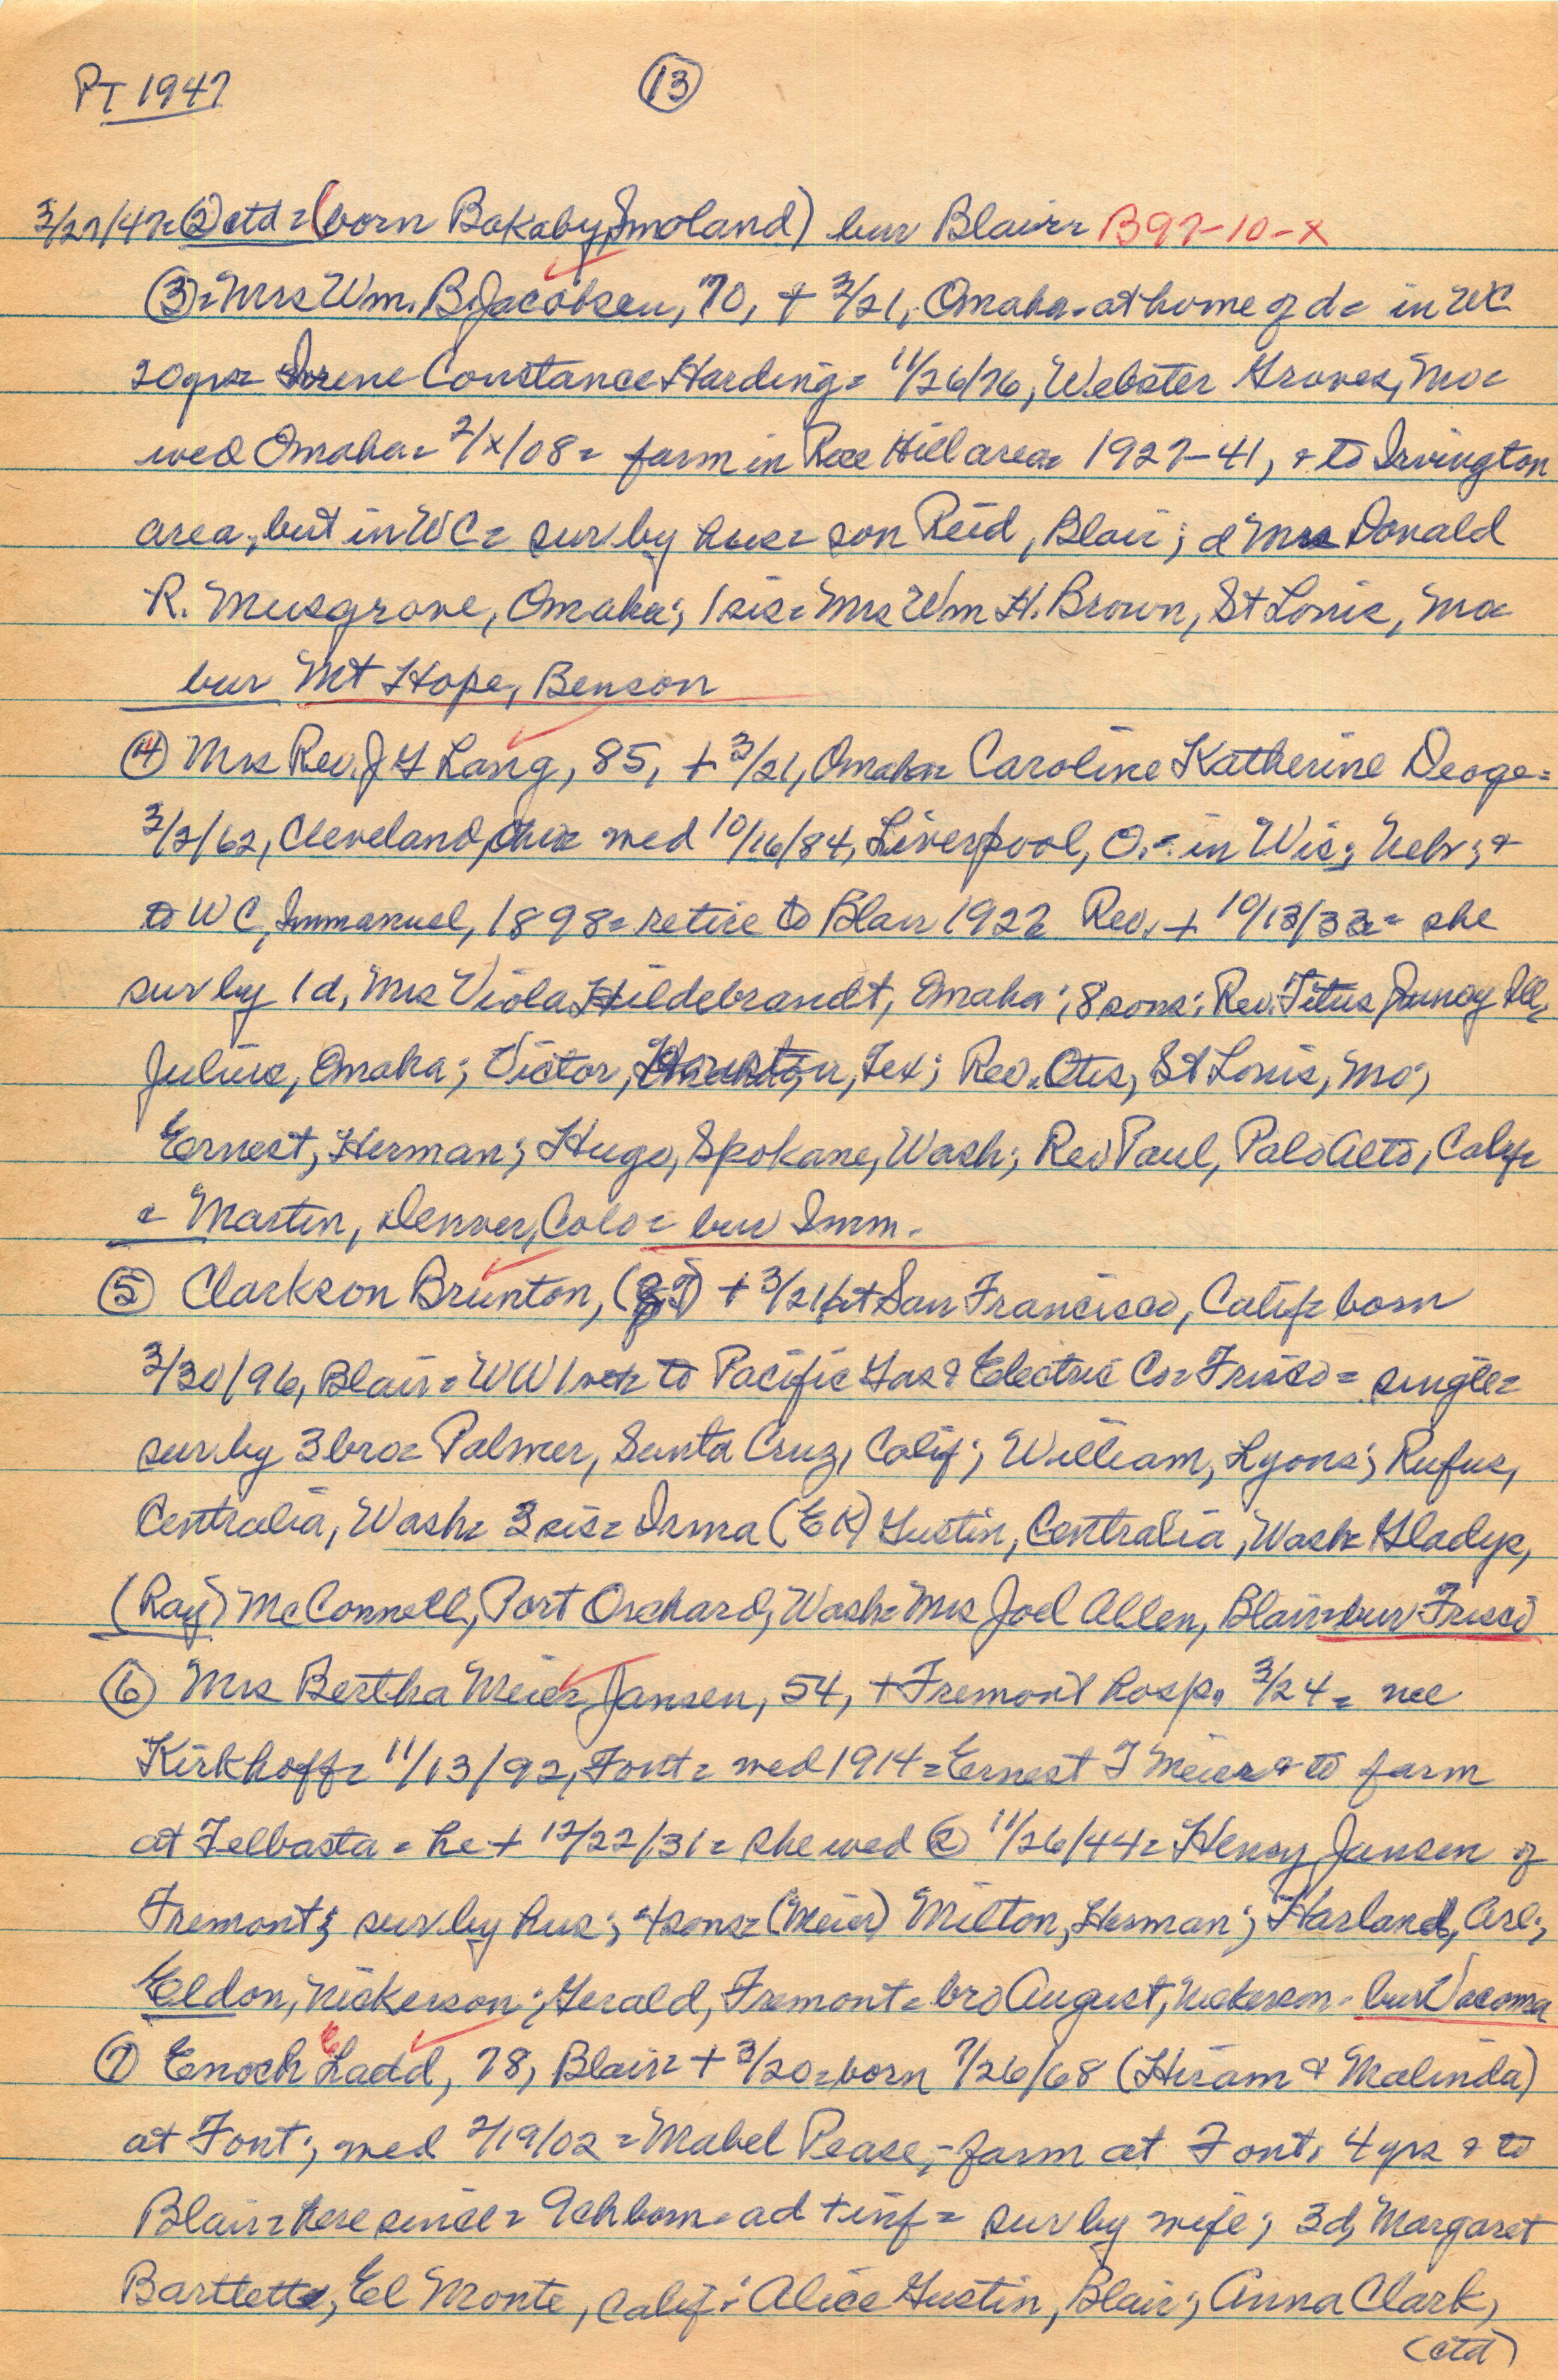 PT 1947
13
3/27/47= ② ctd = (born Bakaby, Smoland) bur Blair= B97-10-X
③= Mrs Wm. B. Jacobsen, 70, + 3/21, Omaha= at home of d= in WC
20 yrs= Irene Constance Harding= 11/26/76, Webster Groves, Mo=
wed Omaha= 2/x/08= farm in Rose Hill area= 1927-41, & to Irvington
area, but in WC= sur by hus= son Reid, Blair; d Mrs Donald
R. Musgrave, Omaha; 1 sis= Mrs Wm H. Brown, St Louis, Mo=
bur Mt Hope, Benson
④ Mrs Rev. J G Lang, 85, + 3/21, Omaha= Caroline Katherine Deoge=
3/2/62, Cleveland, Ohio= wed 10/16/84, Liverpool, O.= in Wis; Nebr; &
to WC, Immanuel, 1898= retire to Blair 1922 Rev. + 10/13/33= she
sur by 1 d, Mrs Viola Hildebrandt, Omaha; 8 sons; Rev. Titus, Ill,
Julius, Omaha; Victor, Houston, Tex; Rev. Otis, St Louis, Mo;
Ernest, Herman; Hugo, Spokane, Wash; Rev Paul, Palo Alto, Calif=
= Martin, Denver, Colo= bur Imm.
⑤ Clarkson Brunton, + 3/21 at San Francisco, Calif= born
3/30/96, Blair= WW1 vet= to Pacific Gas & Electric Co= Frisco= single=
sur by 3 bro= Palmer, Santa Cruz, Calif; William, Lyons; Rufus,
Centralia, Wash= 3 sis= Irma (EK) Gustin, Centralia, Wash= Gladys,
(Ray) McConnell, Port Orchard, Wash= Mrs Joel Allen, Blair= bur Frisco
⑥ Mrs Bertha Meier Jansen, 54, + Fremont hosp, 3/24= nee
Kirkhoff= 11/13/92, Font= wed 1914= Ernest F Meier & to farm
at Telbasta= he + 12/22/31= she wed ② 11/26/44= Henry Jansen of
Fremont; sur by hus; 4 sons= (Meier) Milton, Herman; Harland, Arl;
Eldon, Nickerson; Gerald, Fremont= bro August, Nickerson= bur Vacoma
⑦ Enoch E Ladd, 78, Blair= + 3/20= born 7/26/68 (Hiram & Malinda)
at Font; wed 2/19/02= Mabel Pease;- farm at Font, 4 yrs & to
Blair= here since= 9 ch born= a d + inf= sur by wife; 3 d, Margaret
Bartlett, El Monte, Calif; Alice Gustin, Blair; Anna Clark,
(ctd)